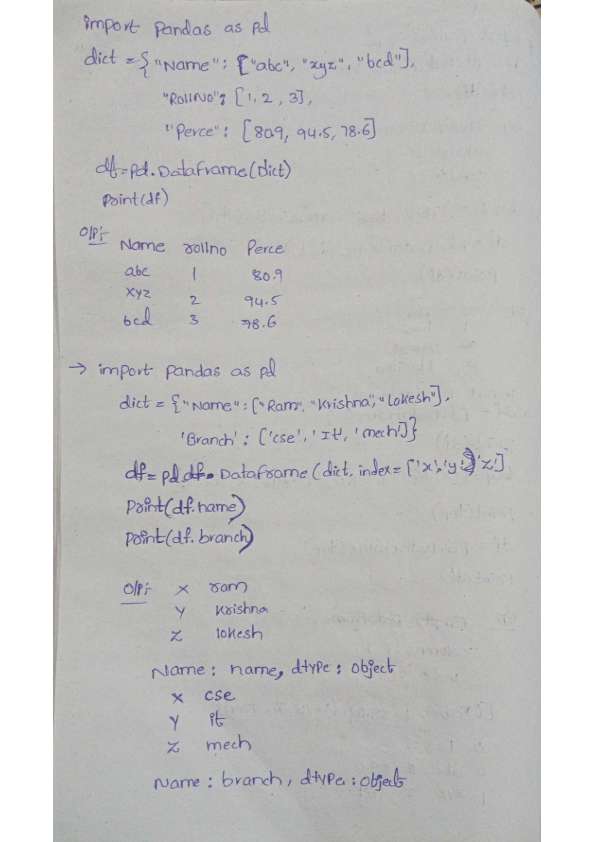 import pandas as pd
dict = { "Name": ["abc", "xyz", "bcd"],
"RollNo": [1, 2, 3],
"Perce": [80.9, 94.5, 78.6]
df=pd.Dataframe(dict)
Print(df)
O/P:-
Name rollno Perce
abc 1 80.9
xyz 2 94.5
bcd 3 78.6
→ import pandas as pd
dict = {"Name": ["Ram", "Krishna", "Lokesh"],
'Branch': ['cse', 'It', 'mech']}
df= pd.df. Dataframe (dict, index= ['x','y','z']
Print(df.name)
Print(df.branch)
O/P:- x ram
y krishna
z lokesh
Name: name, dtype: object
x cse
y it
z mech
Name: branch, dtype: object